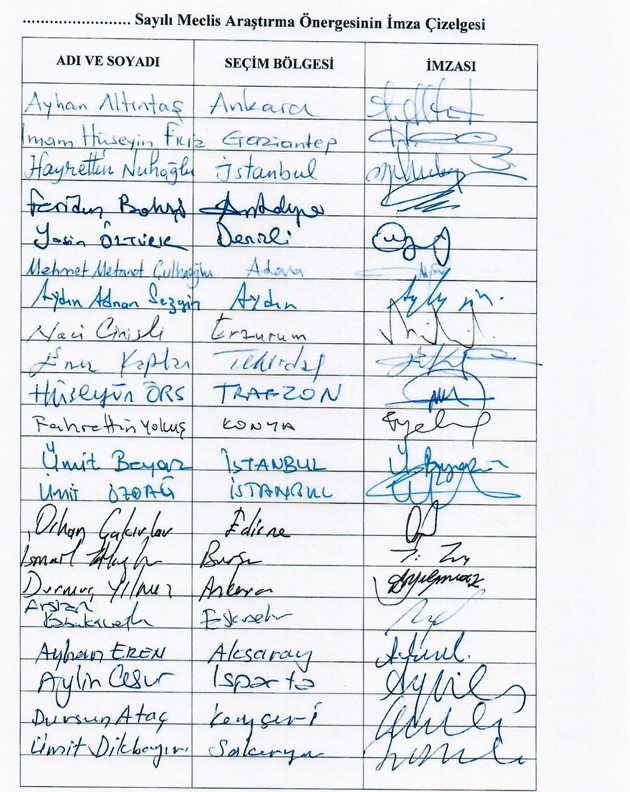 ........................... Sayılı Meclis Araştırma Önergesinin İmza Çizelgesi
ADI VE SOYADI SEÇİM BÖLGESİ İMZASI
Ayhan Altıntaş Ankara
İmam Hüseyin Filiz Gaziantep
Hayrettin Nuhoğlu İstanbul
Feridun Bahşi Antalya
Yasin ÖZTÜRK Denizli
Mehmet Metanet Çulhaoğlu Adana
Aydın Adnan Sezgin Aydın
Naci Cinisli Erzurum
Enez Kaplan Tekirdağ
HÜSEYİN ÖRS TRABZON
Fahrettin Yokuş KONYA
Ümit Beyaz İSTANBUL
Ümit ÖZDAĞ İSTANBUL
Orhan Çakırlar Edirne
İsmail Bursa
Durmuş YILMAZ Ankara
Arslan Kabukcuoğlu Eskişehir
Ayhan EREN Aksaray
Aylin Cesur Isparta
Dursun Ataş Kayseri
Ümit Dikbayır Sakarya